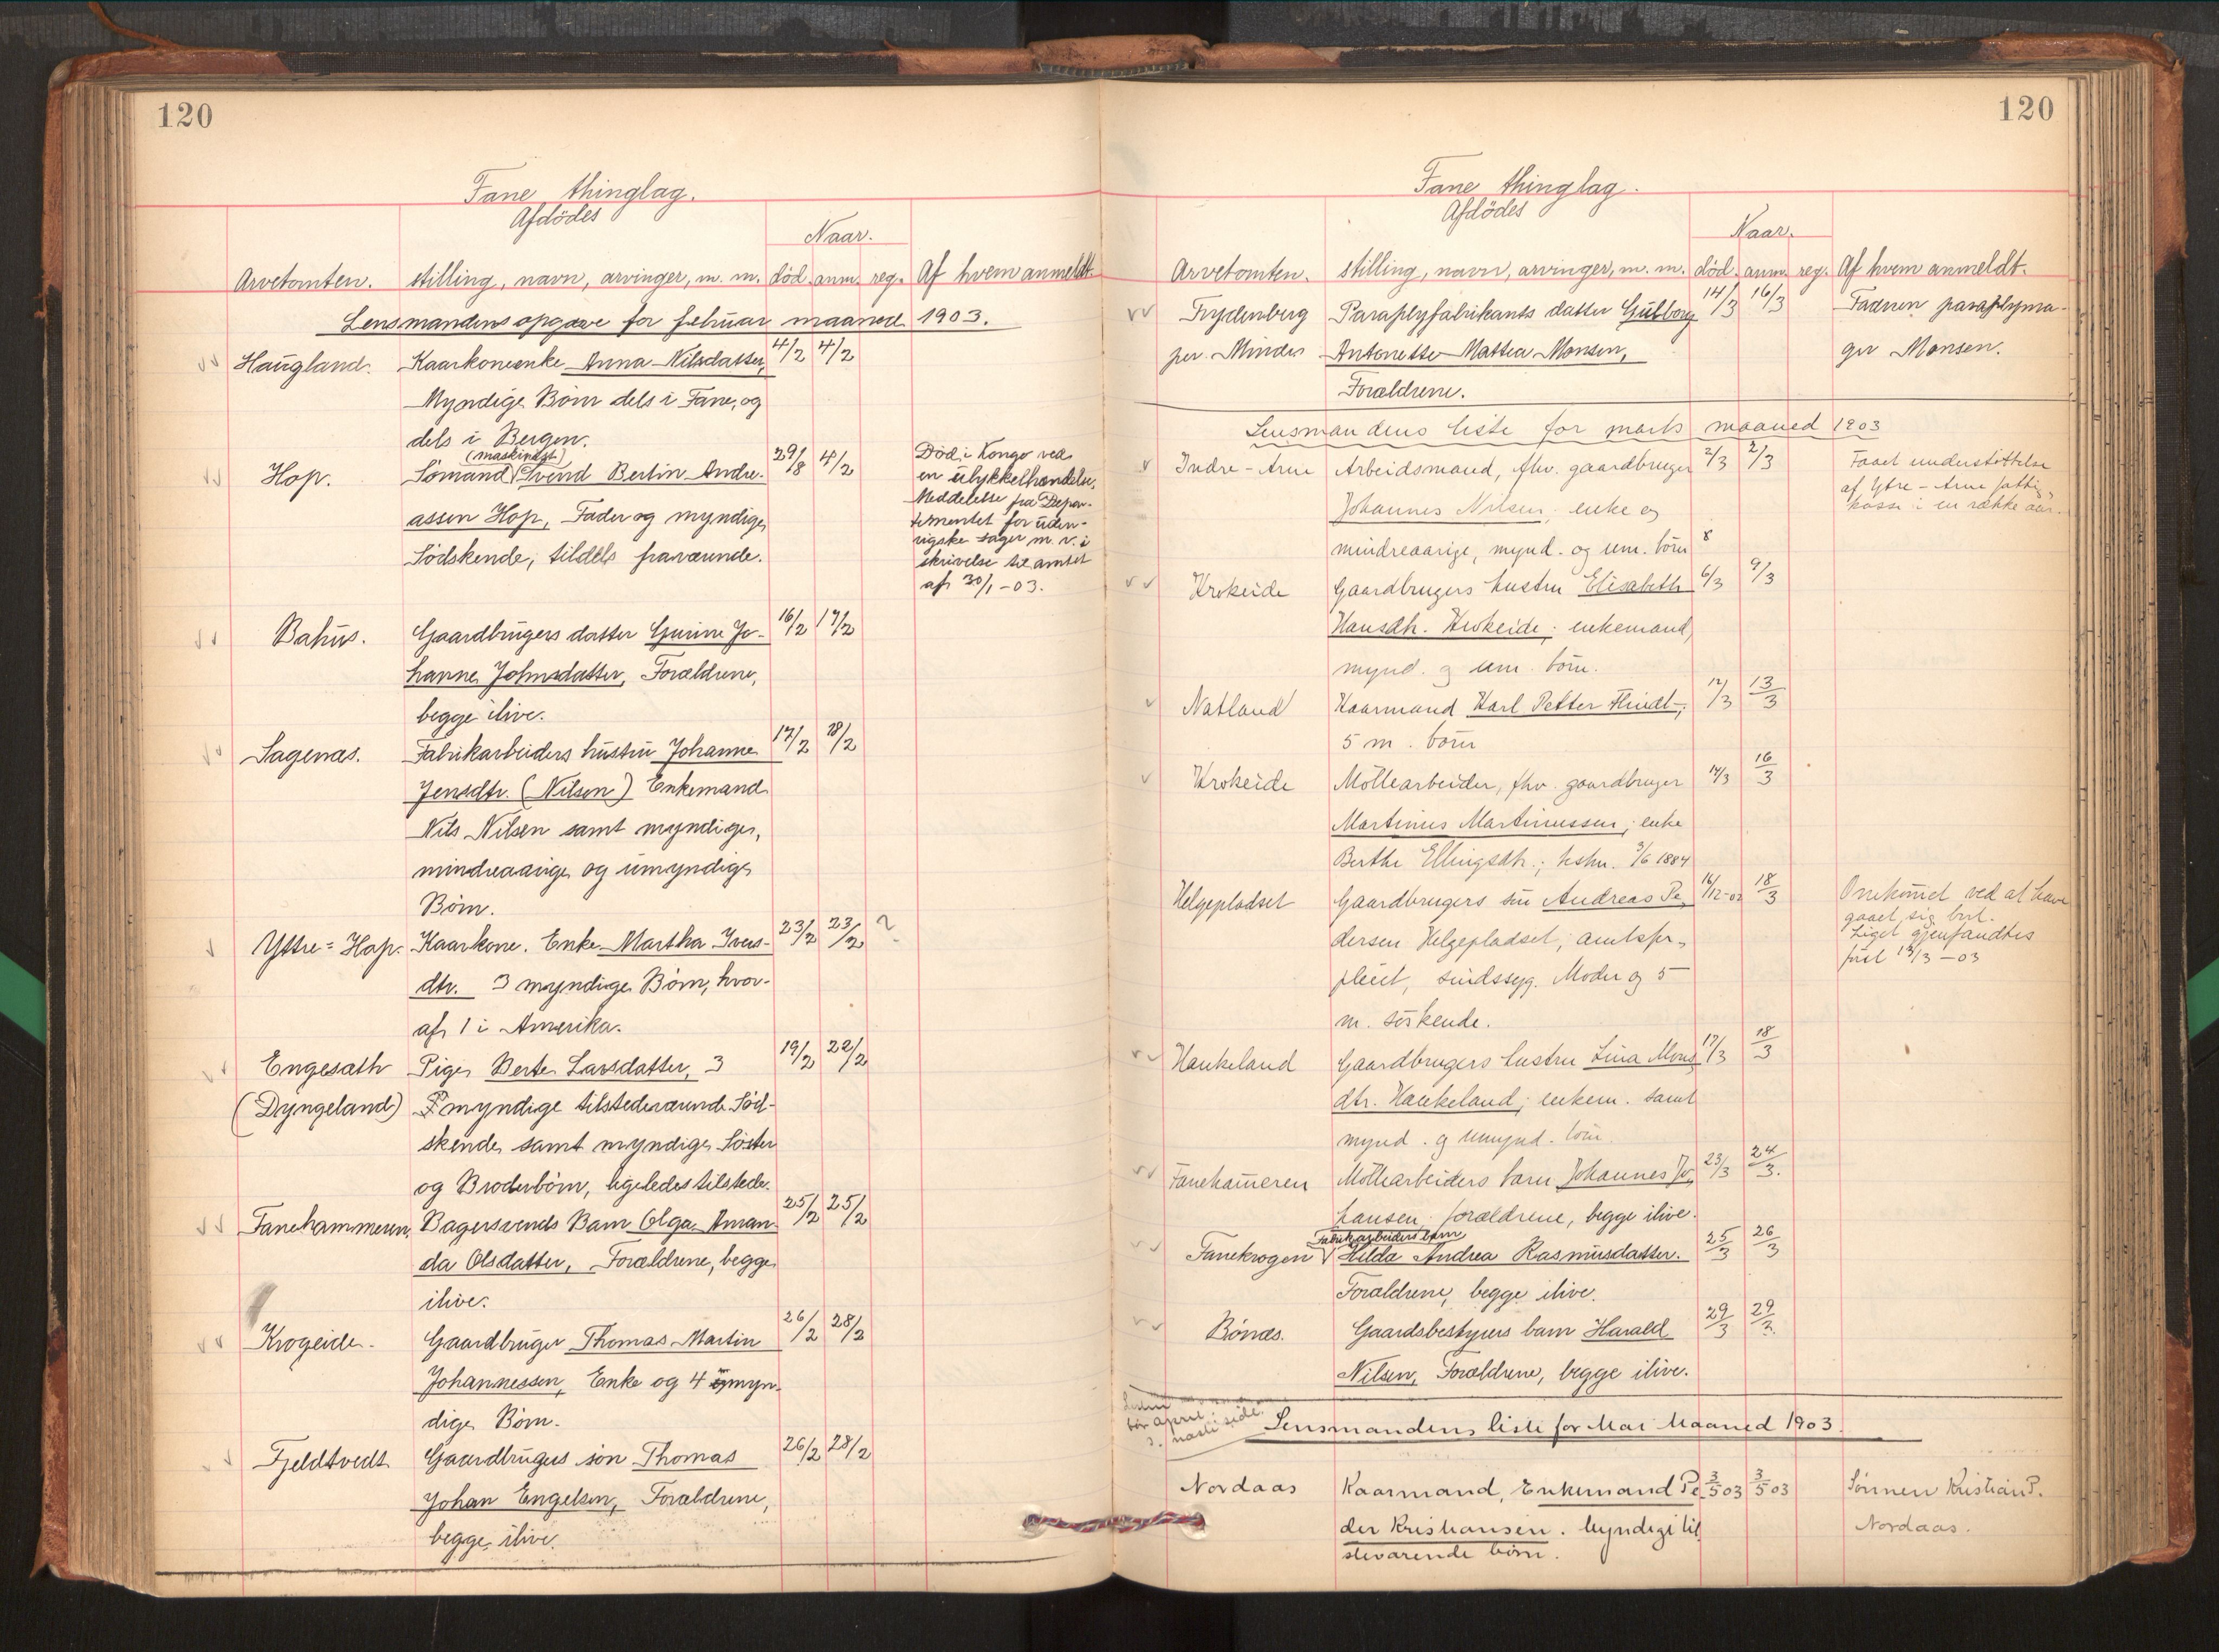 120
Fane thinglag.
Afdödes
Naar.
Arvetomten. stilling, navn, arvinger, m. m. död. anm. reg. Af hvem anmeldt.
Lensmandens opgave for februar maaned 1903.
Haugland. Kaarkoneenke Anna Nilsdatter, 4/2 4/2
Myndige Börn dels i Fane, og
dels i Bergen.
(maskinist)
Hop. Sömand Svend Bertin Andre- 29/8 4/2
assen Hop, Fader og myndige
Södskende, tildels fraværende.
Död i Kongo ved
en ulykkelhændelse.
Meddelelse fra Depar-
tementet for uden-
rigske sager m. v. i
skrivelse til amtet
af 30/1-03.
Bahus. Gaardbrugers datter Gurine Jo- 16/2 17/2
hanne Johnsdatter, Forældrene,
begge ilive.
Sagenæs. Fabrikarbeiders hustru Johanne 17/2 18/2
Jensdtr. (Nilsen) Enkemand
Nils Nilsen samt myndige,
mindreaarige og umyndige
Börn.
Yttre=Hop. Kaarkone. Enke Martha Ivers- 23/2 23/2 ?
dtr. 3 myndige Börn, hvor-
af 1 i Amerika.
Engesæth Pige Berte Larsdatter, 3 19/2 22/2
(Dyngeland) myndige tilstedeværende Söd-
skende samt myndige Söster
og Broderbörn, ligeledes tilstede.
Fanehammeren. Bagersvends Barn Olga Aman- 25/2 25/2
da Olsdatter, Forældrene, begge
ilive.
Krogeide. Gaardbruger Thomas Martin 26/2 28/2
Johannessen, Enke og 4 umyn-
dige Börn.
Fjeldtvedt Gaardbrugers sön Thomas 26/2 28/2
Johan Engelsen, Forældrene,
begge ilive.
120
Fane thinglag.
Afdödes
Naar.
Arvetomten. stilling, navn, arvinger, m. m. död. anm. reg. Af hvem anmeldt.
Frydenberg Paraplyfabrikants datter Gubborg 14/3 16/3 Faderen paraplyma-
per Minde Antonette Mattea Monsen, ger Monsen.
Forældrene.
Lensmandens liste for marts maaned 1903
Indre-Arne Arbeidsmand, fhv. gaardbruger 2/3 2/3 Faaet understöttelse
Johannes Nilsen; enke og af Ytre-Arne fattig-
mindreaarige, mynd. og um. börn 8 kasse i en række aar.
Krokeide Gaardbrugers hustru Elisabeth 6/3 9/3
Hansdh. Krokeide; enkemand,
mynd. og um. börn.
Natland Kaarmand Karl Petter Flindt; 12/3 13/3
5 m. börn
Krokeide Möllearbeider, fhv. gaardbruger 14/3 16/3
Martinus Martinussen; enke
Berthe Ellingsdh.; testm. 3/6 1884
Helgepladset Gaardbrugers sön Andreas Pe- 16/12-02 18/3 Omkommet ved at have
dersen Helgepladset; amtsfor- gaaet sig bort.
pleiet, sindssyg. Moder og 5 Liget gjenfandtes
m. söskende. först 13/3-03
Haukeland Gaardbrugers hustru Lina Mons- 17/3 18/3
dtr. Haukeland; enkem. samt
mynd. og umynd. börn.
Fanehammeren Möllearbeiders barn Johannes Jo- 23/3 24/3.
hansen; forældrene, begge ilive.
Fabrikarbeiders barn
Fanekrogen Hilda Andrea Rasmusdatter. 25/3 26/3
Forældrene, begge ilive.
Bönæs. Gaardsbestyrers barn Harald 29/3 29/3.
Nilsen, Forældrene, begge ilive.
for april
s. næste side.
Lensmandens liste for Mai Maaned 1903.
Nordaas Kaarmand, Enkemand Pe- 3/5 03 3/5 03 Sönnen Kristian P.
der Kristiansen. Myndige til Nordaas.
steværende börn.